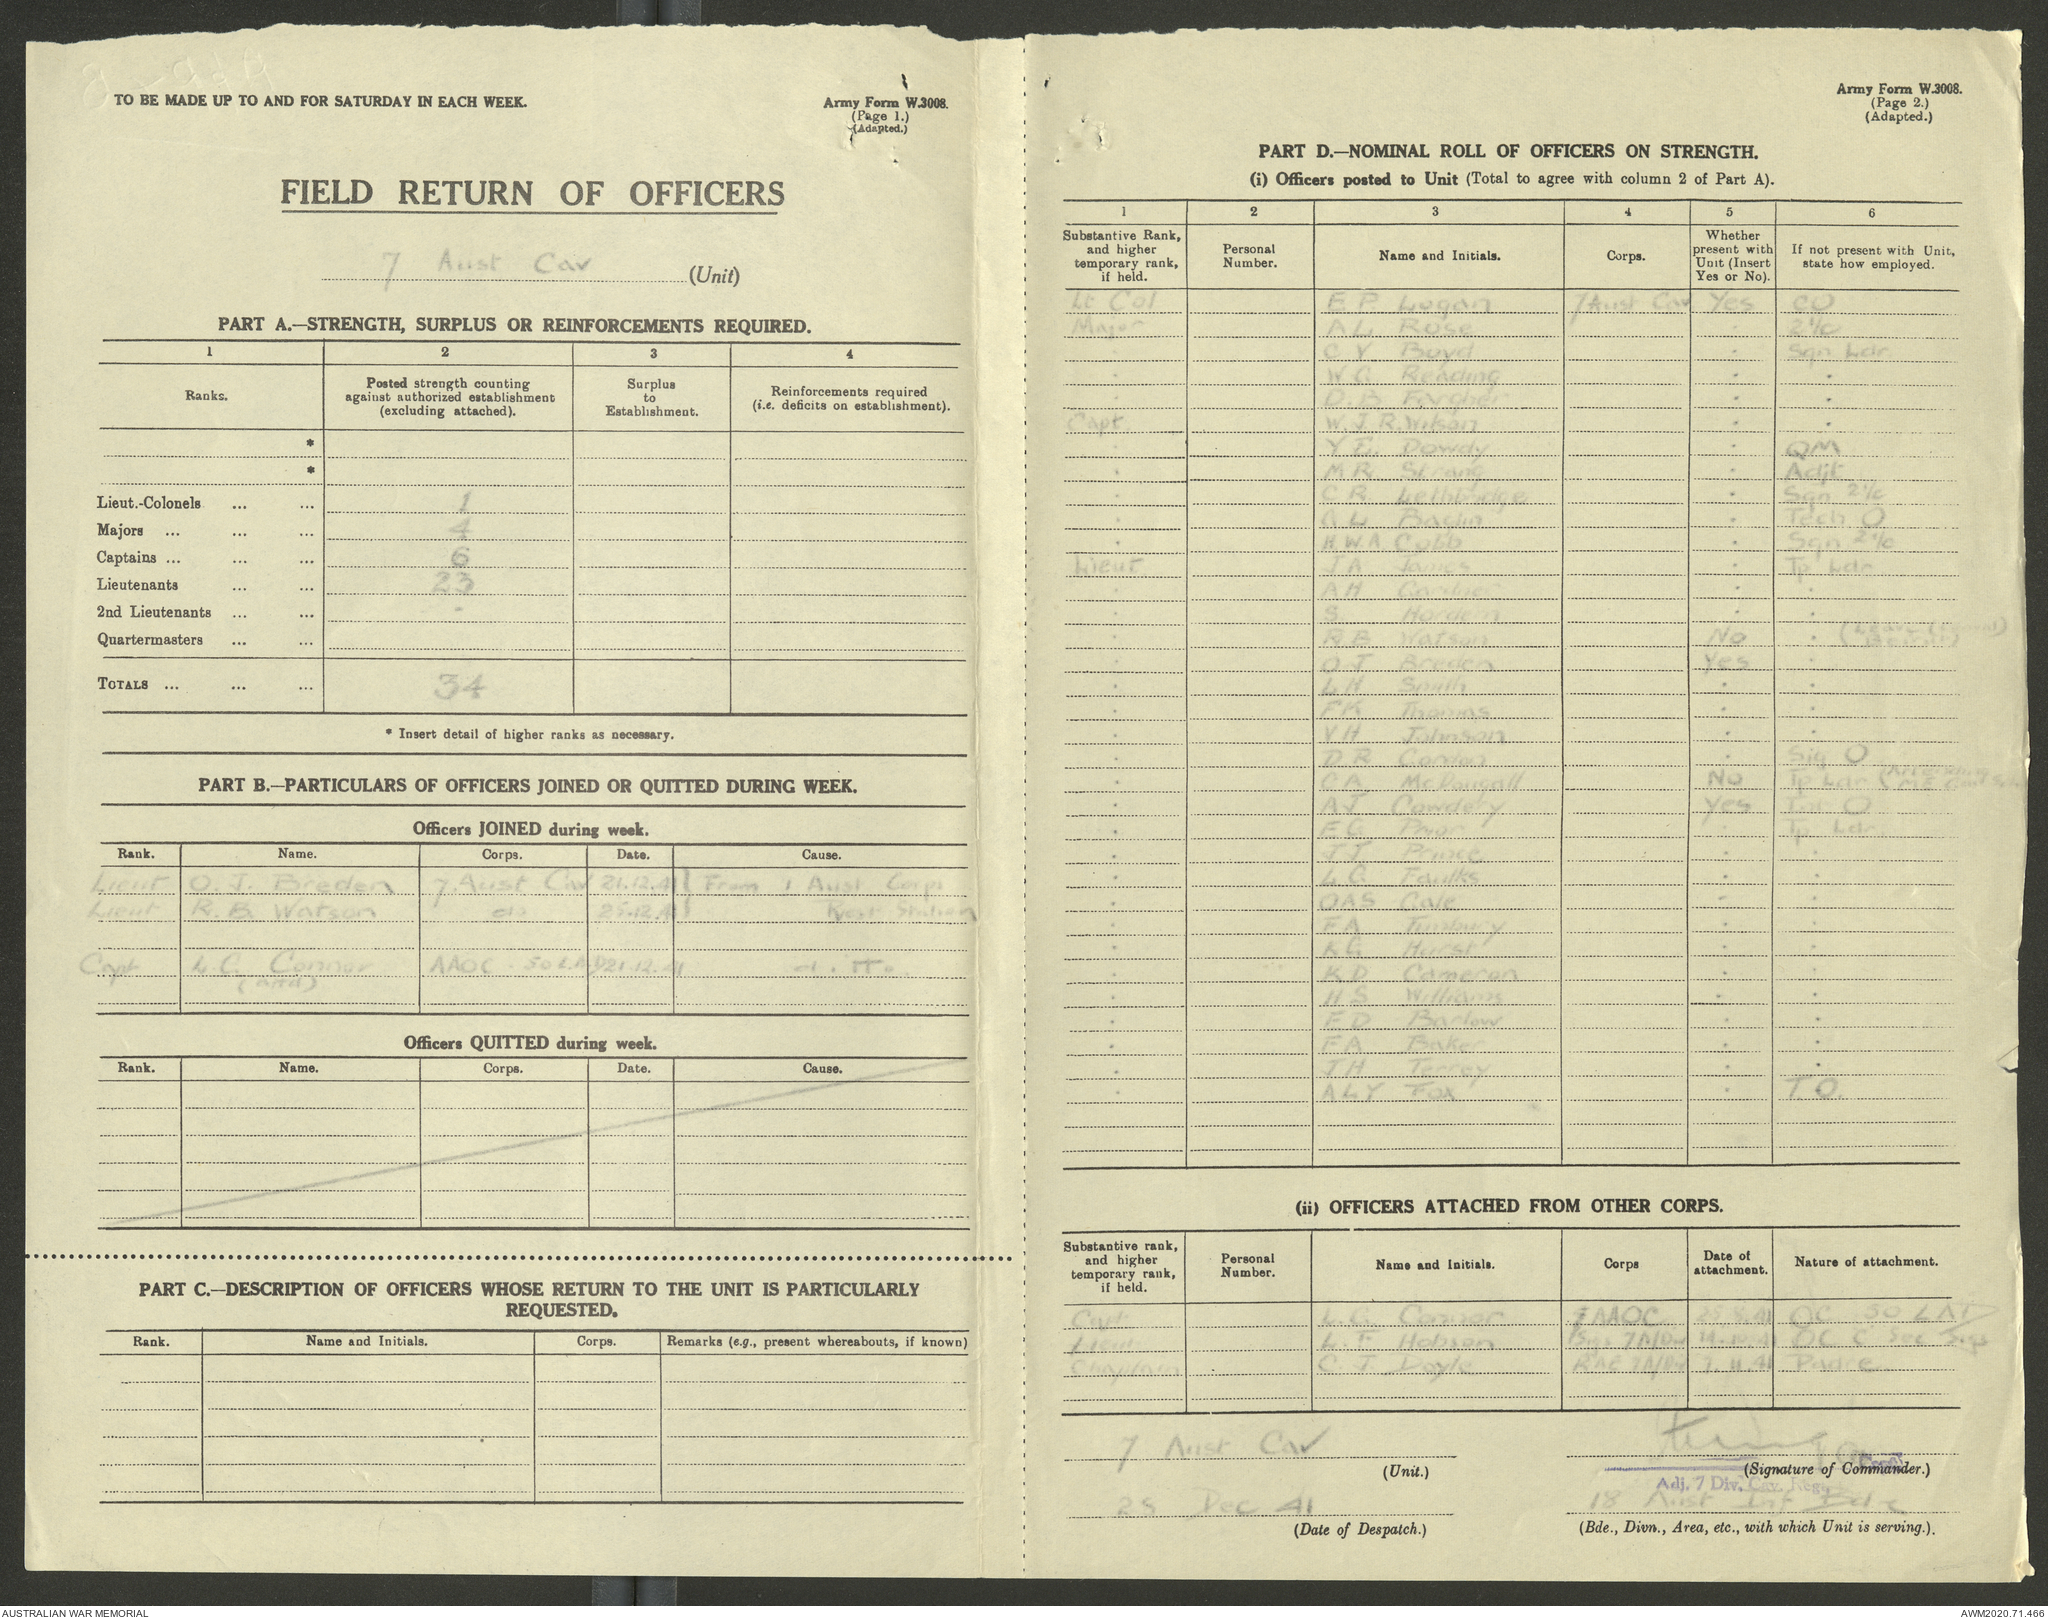 TO BE MADE UP TO AND FOR SATURDAY IN EACH WEEK.
Army Form W.3008.
(Page 1.)
(Adapted.)
FIELD RETURN OF OFFICERS
7 Aust Cav (Unit)
PART A.—STRENGTH, SURPLUS OR REINFORCEMENTS REQUIRED.
1 2 3 4
Ranks. Posted strength counting against authorized establishment (excluding attached). Surplus to Establishment. Reinforcements required (i.e. deficits on establishment).
*
*
Lieut.-Colonels ... ... 1
Majors ... ... ... 4
Captains ... ... ... 6
Lieutenants ... ... 23
2nd Lieutenants ... ... -
Quartermasters ... ...
TOTALS ... ... ... 34
* Insert detail of higher ranks as necessary.
PART B.—PARTICULARS OF OFFICERS JOINED OR QUITTED DURING WEEK.
Officers JOINED during week.
Rank. Name. Corps. Date. Cause.
Lieut O. J. Breden 7 Aust Cav 21.12.41 From 1 Aust Corps
Lieut R. B. Watson do 25.12.41 Rest Station
Capt L. G. Connor AAOC 50 LAD 21.12.41
(attd)
Officers QUITTED during week.
Rank. Name. Corps. Date. Cause.
PART C.—DESCRIPTION OF OFFICERS WHOSE RETURN TO THE UNIT IS PARTICULARLY
REQUESTED.
Rank. Name and Initials. Corps. Remarks (e.g., present whereabouts, if known)
Army Form W.3008.
(Page 2.)
(Adapted.)
PART D.—NOMINAL ROLL OF OFFICERS ON STRENGTH.
(i) Officers posted to Unit (Total to agree with column 2 of Part A).
1 2 3 4 5 6
Substantive Rank, and higher temporary rank, if held. Personal Number. Name and Initials. Corps. Whether present with Unit (Insert Yes or No). If not present with Unit, state how employed.
Lt Col E P Logan 7 Aust Cav Yes CO
Major A L Rose " 2i/c
" C Y Boyd " Sqn Ldr
" W G Reading " "
" D. B. Fargher " "
Capt W. J. R. Wilson " "
" Y E. Dowdy " QM
" M R Strang " Adjt
" C R Lethbridge " Sqn 2i/c
" A L Baglin " Tech O
" H W A Cobb " Sqn 2i/c
Lieut J A James " Tp Ldr
" A H Gardner " "
" S Hordern " "
" R B Watson No "
" O J Breden Yes "
" L H Smith " "
" F K Thomas " "
" V H Johnson " "
" D R Cordon " Sig O
" C A McDougall No Tp Ldr
" A J Cowdery Yes Int O
" E G Prior " Tp Ldr
" J J Prince " "
" L G Faulks " "
" O A S Cale " "
" F A Timbury " "
" K G Hurst " "
" K D Cameron " "
" H S Williams " "
" F D Barlow " "
" F A Baker " "
" J H Terrey " "
" A L Y Fox " T O.
(ii) OFFICERS ATTACHED FROM OTHER CORPS.
Substantive rank, and higher temporary rank, if held. Personal Number. Name and Initials. Corps Date of attachment. Nature of attachment.
Capt L. G. Connor AAOC 25.8.41 OC 50 LAD
Lieut L. F. Hobson Sigs 7 A/Div 14.10.41 OC C Sec Sigs
Chaplain C. J. Doyle 7.11.41 Padre
7 Aust Cav
(Unit.)
(Signature of Commander.)
Adj. 7 Div. Cav. Regt
Dec 41
(Date of Despatch.)
18 Aust Inf Bde
(Bde., Divn., Area, etc., with which Unit is serving.).
AUSTRALIAN WAR MEMORIAL
AWM2020.71.466